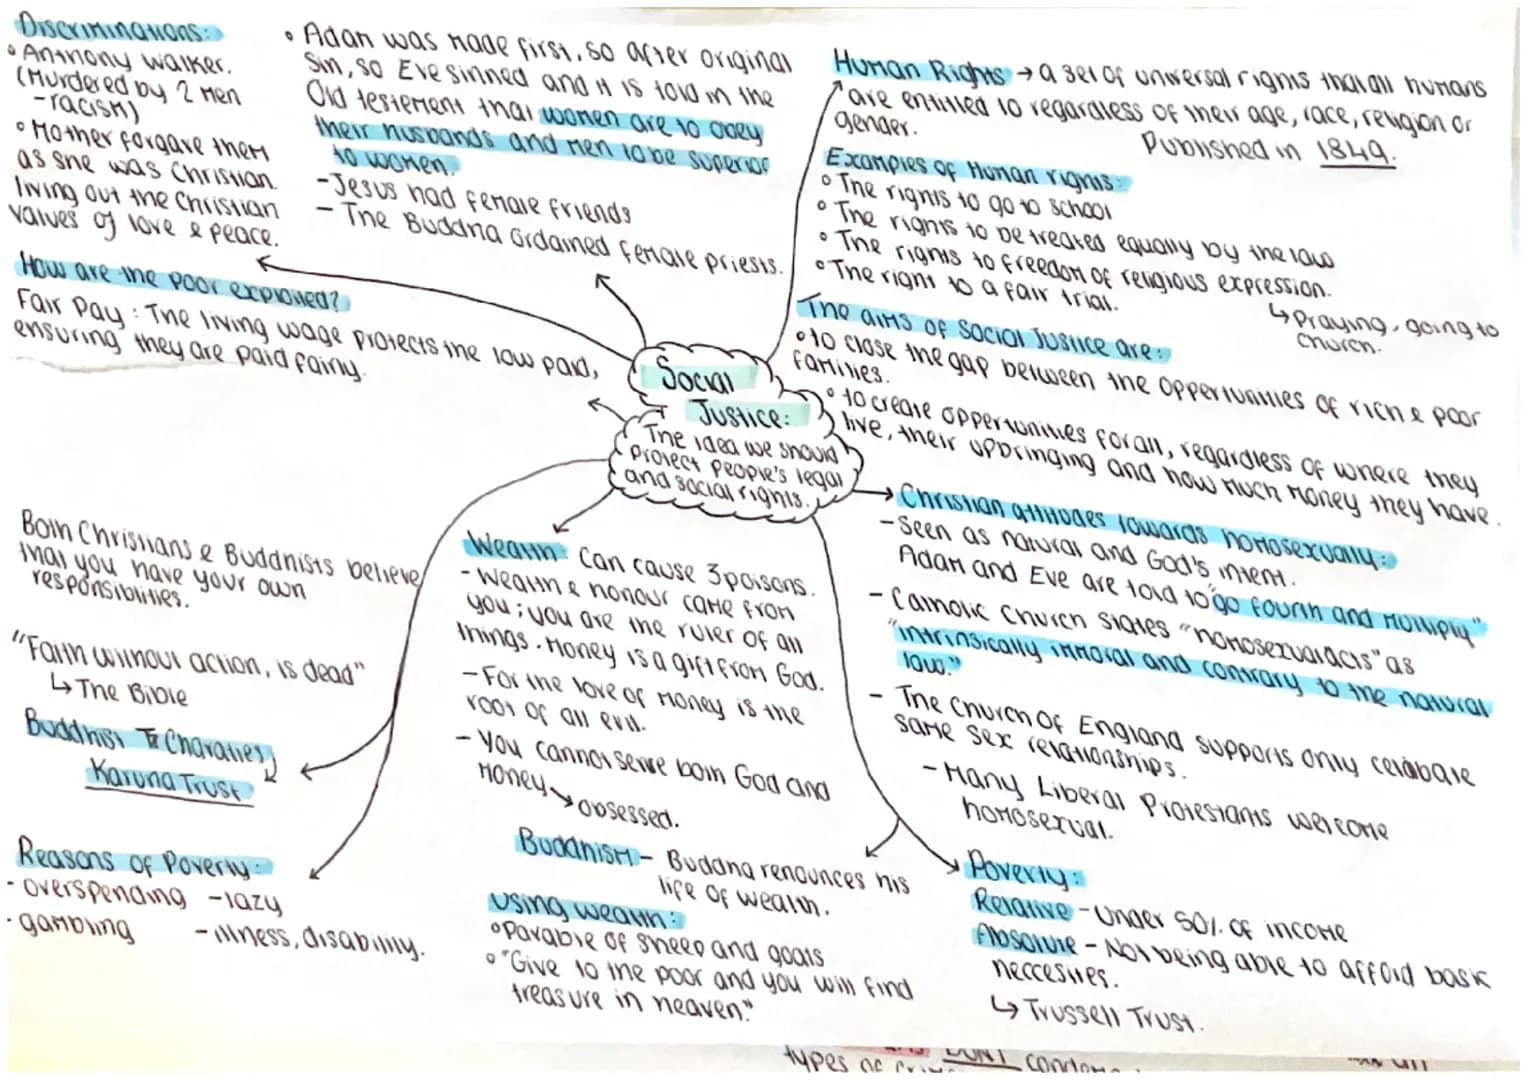 Discriminations:
• Anthony Walker.
(Murdered by 2 men
- racism)
• Mother forgave them
as she was Christian
living out the Christian
values of love & peace.
• Adam was made first, so after original
Sin, so Eve sinned and it is told in the
Old testement that women are to obey
their husbands and men to be superior
to women.
- Jesus had female friends
- The Buddha ordained female priests.
Human Rights → a set of universal rights that all humans
are entitled to regardless of their age, race, religion or
gender.
Published in 1849.
Examples of Human rights:
• The rights to go to school
• The rights to be treated equally by the law
• The rights to freedom of religious expression.
↳ Praying, going to
church.
• The right to a fair trial.
The aims of Social Justice are:
• to close the gap between the opportunities of rich & poor
families.
• to create opportunities for all, regardless of where they
live, their upbringing and how much money they have.
How are the poor exploited?
Fair Pay: The living wage protects the low paid,
ensuring they are paid fairly.
Social
Justice:
The idea we should
protect people's legal
and social rights.
→ Christian attitudes towards homosexually:
- Seen as natural and God's intent.
Adam and Eve are told to "go fourth and multiply"
- Catholic Church states "homosexual acts" as
"intrinsically immoral and contrary to the natural
law."
- The Church Of England supports only celabate
same sex relationships.
- Many Liberal Protestants welcome
homosexual.
Both Christians & Buddhists believe
that you have your own
responsiblities.
"Faith without action, is dead"
↳ The Bible
Buddhist Charaties
Karuna Trust
Reasons of Poverty:
- overspending - lazy
- gambling - illness, disability.
Wealth: Can cause 3 poisons.
- Wealth & honour came from
you; you are the ruler of all
things. Money is a gift from God.
- For the love of money is the
root of all evil.
- You cannot serve both God and
Money → obsessed.
Buddhism - Buddha renounces his
life of wealth.
Using wealth:
• Parable of sheep and goats
• "Give to the poor and you will find
treasure in heaven."
Poverty:
Relative - Under 50% of income
Absolute - Not being able to afford basic
neccesites.
↳ Trussell Trust.
DONT
types of